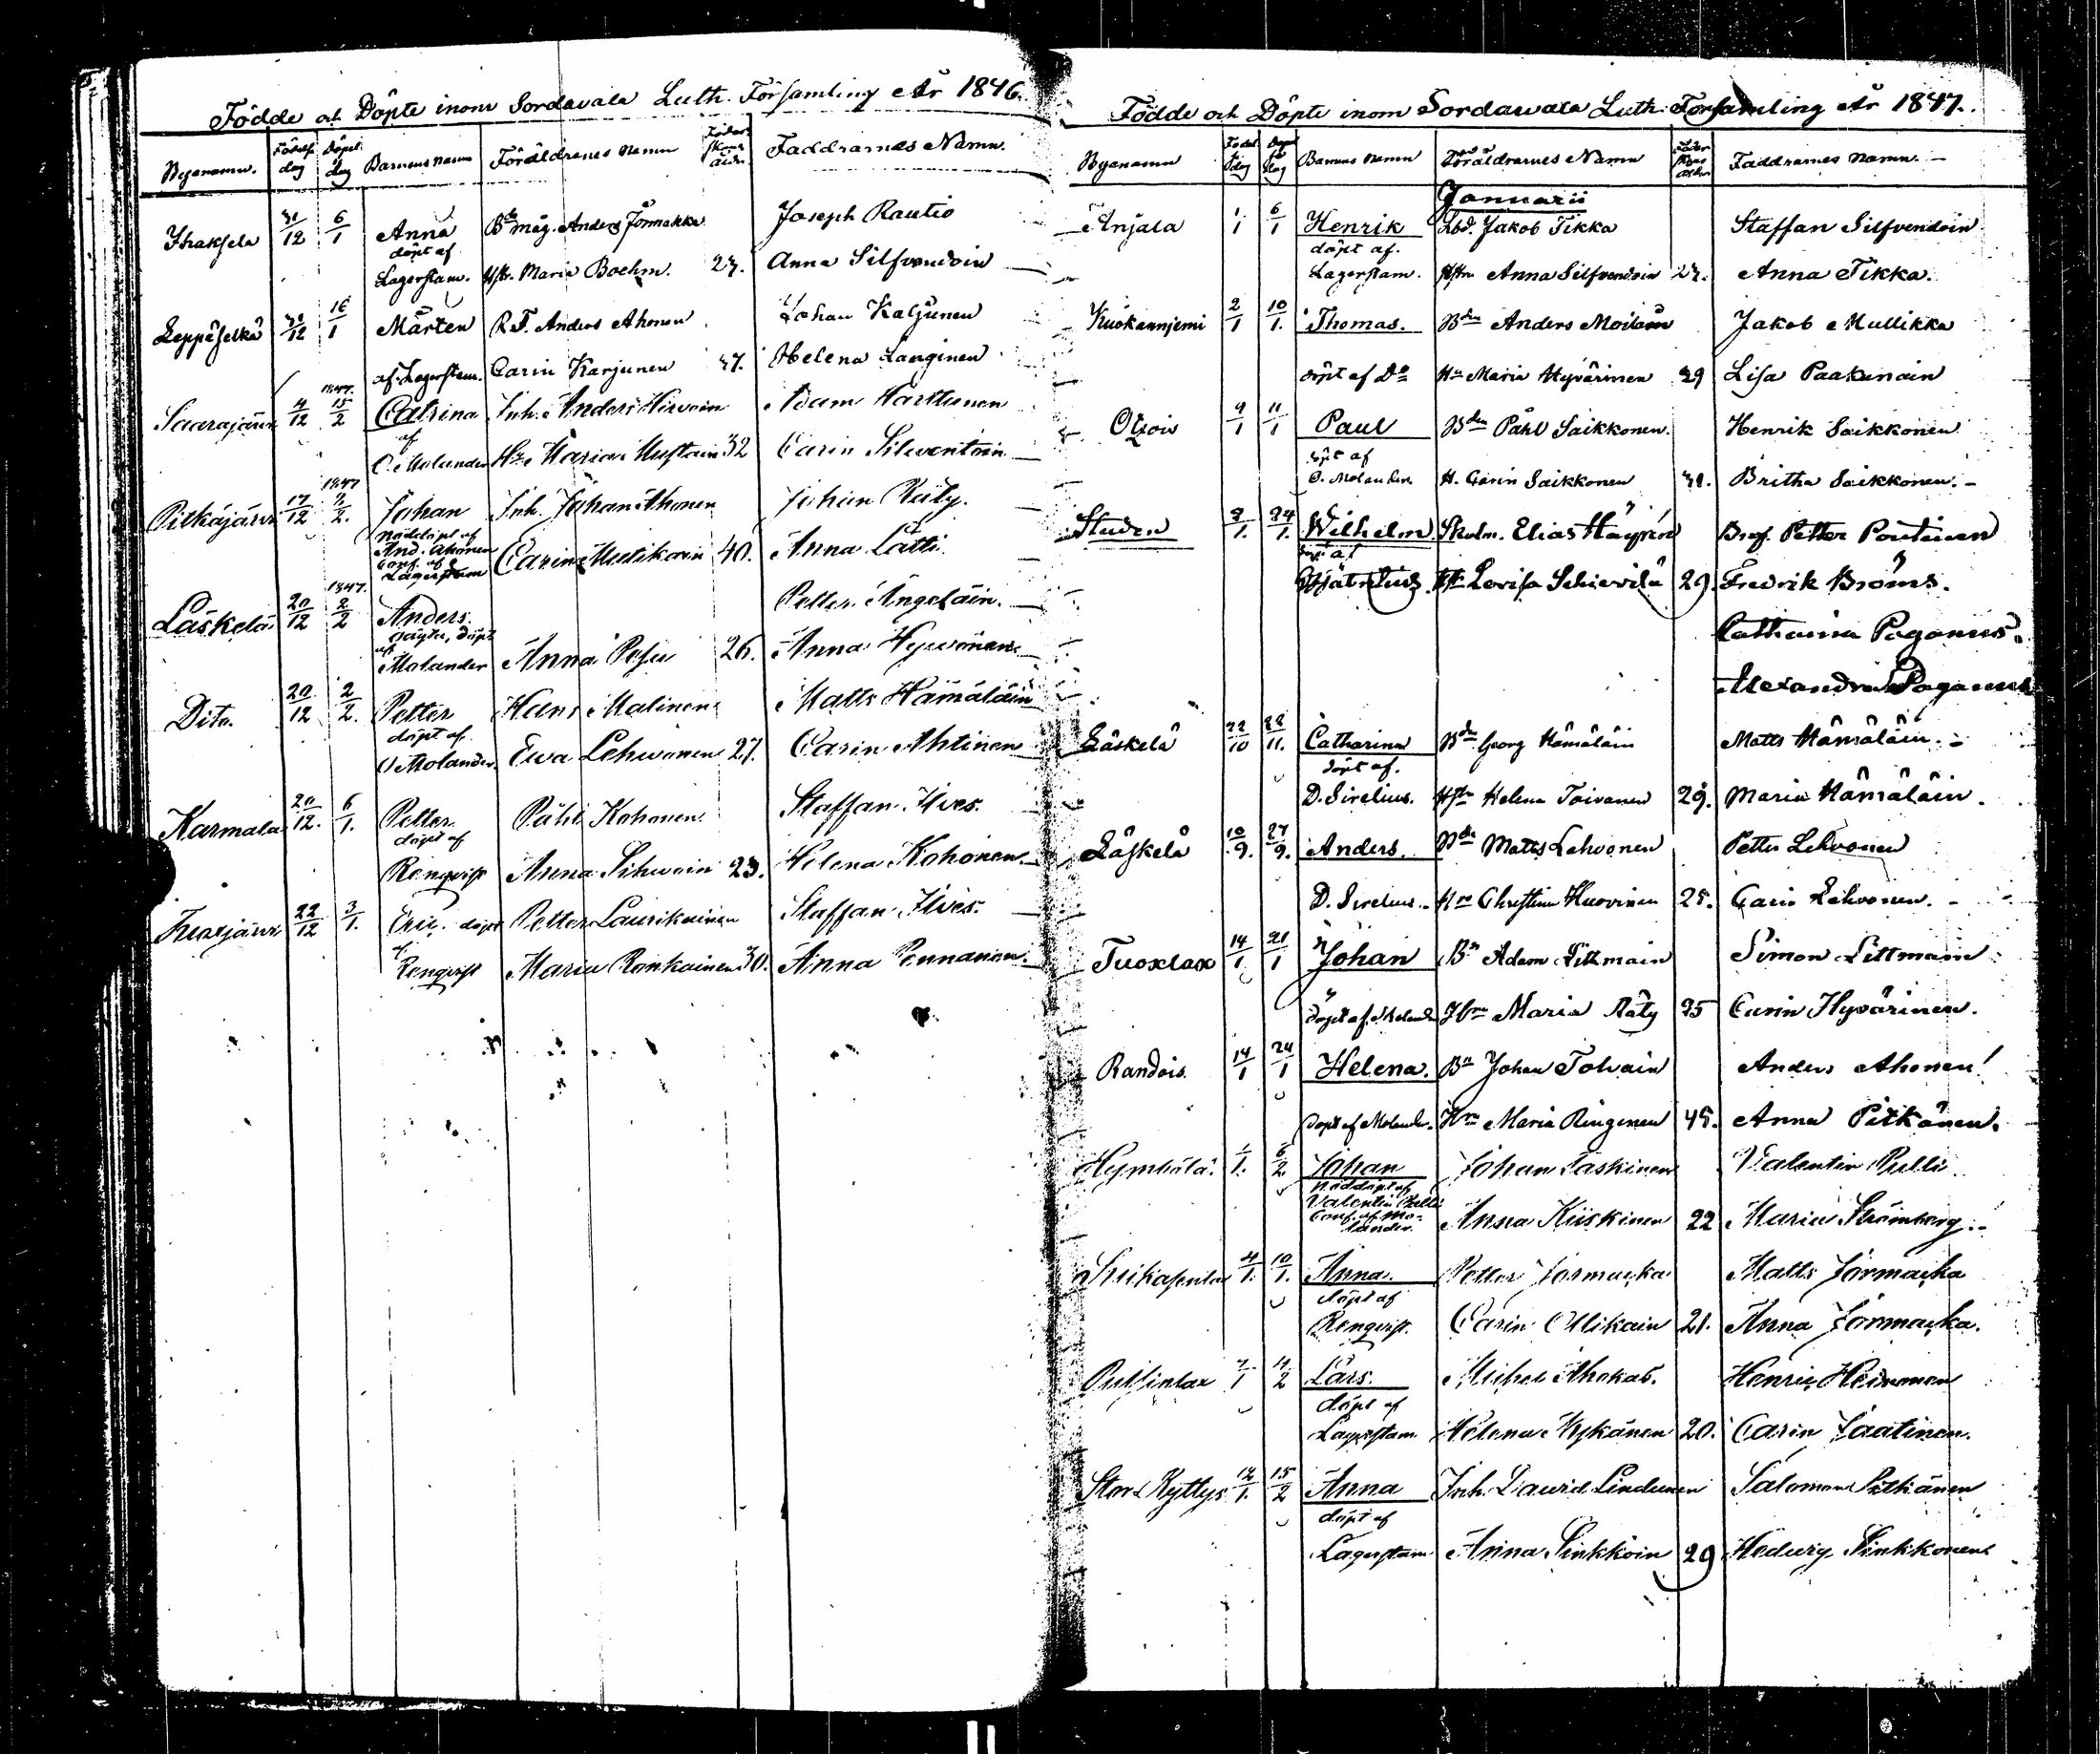 Födde och Döpte inom Sordavala Luth. Församling År 1846.
Byanamn. Födels dag Döpel. dag Barnens namn Föräldrarnes namn Faddrarnes Namn.
31/12 6/1 Anna Anders Jormakka Joseph Rautio
döpt af
Lagerstam. Maria Boehm. 27. Anna Silfvendoin
Leppäselkä 31/12 16/1 Mårten Anders Ahonen Johan Karjunen
af Lagerstam. Carin Karjunen 37. Helena Langinen
1847.
4/12 15/2 Catrina Inh. Anders Hirvoin Adam Harttunen
af
O. Molander Maria Mustain 32 Carin Silventoin
1847
Pitkäjärvi 17/12 2/2. Johan Inh. Johan Ahonen Johan Räty.
nöddöpt af
And. Ahonen
Conf. af
Lagerstam Carin Mustikain 40. Anna Lätti.
1847.
Läskelä 20/12 2/2 Anders. Petter Ängeläin.
oägta, döpt
af
Molander Anna Pesu 26. Anna Hyvönen.
Dito. 20/12 2/2. Petter Hans Malinen Matts Hämäläin
döpt af
O Molander. Ewa Lehvonen 27. Carin Ahtinen
Karmala 20/12. 6/1. Petter Påhl Kohonen Staffan Ilves.
döpt af
Renqvist Anna Sihvoin 23. Helena Kohonen.
22/12 3/1. Eric. döpt Petter Laurikainen Staffan Ilves.
af
Renqvist Maria Ronkainen 30. Anna Pennanen.
Födde och Döpte inom Sordavala Luth. Församling År 1847.
Byanamn Födels dag Döpel dag Barnens namn Föräldrarnes Namn Faddrarnes namn.
Januarii
Anjala 1/1 6/1 Henrik Jakob Tikka Staffan Silfvendoin
döpt af.
Lagerstam. Anna Silfvendoin 27. Anna Tikka.
Kuokanniemi 2/1 10/1. Thomas. Bden Anders Moilain Jakob Mullikka
döpt af Do Maria Hyvärinen 29 Lisa Paakunain
Otsois 9/1 11/1 Paul Bden Påhl Saikkonen. Henrik Saikkonen
döpt af
O. Molander. H. Carin Saikkonen Britha Saikkonen.
Staden 24/1. Wilhelm Skolm. Elias Häyrén Petter Pontinen
döpt af
Lovisa Schiervilä 29. Fredrik Broms.
Catharina Paganus.
Alexandra Paganus
Läskelä 22/10 22/11. Catharina Bden Georg Hämäläin Matts Hämäläin.
döpt af.
D. Sirelius. Helena Toivanen 29. Maria Hämäläin.
Läskelä 10/9. 27/9. Anders. Matts Lehvonen Petter Lehvonen
D. Sirelius. Christina Huovinen 25. Carin Lehvonen.
Tuoxlax 14/1 21/1 Johan Bn Adam Littmain Simon Littmain
döpt af Molander Maria Räty 25 Carin Hyvärinen.
Randois 14/1 24/1 Helena. Bn Johan Tolvain Anders Ahonen
döpt af Molander. Maria Ringinen 45. Anna Pitkänen.
Hympölä. 1/1. 6/2 Johan Johan Taskinen Valentin Pulli
Nöddöpt af
Valentin Pulli
Conf. af Mo-
lander. Anna Kiiskinen 22 Maria Strömberg.
4/1. 10/1. Anna. Petter Jormacka Matts Jormacka
döpt af
Renqvist. Carin Ollikain 21. Anna Jormacka.
7/1 11/2 Lars. Michel Ahokas. Henric Heinonen
döpt af
Lagerstam Helena Nykänen 20. Carin Saatinen.
Stor Ryttys 12/1. 15/2 Anna Inh. David Lindunen Salomon Pitkänen
döpt af
Lagerstam Anna Sinkkoin 29 Hedwig Sinkkonen